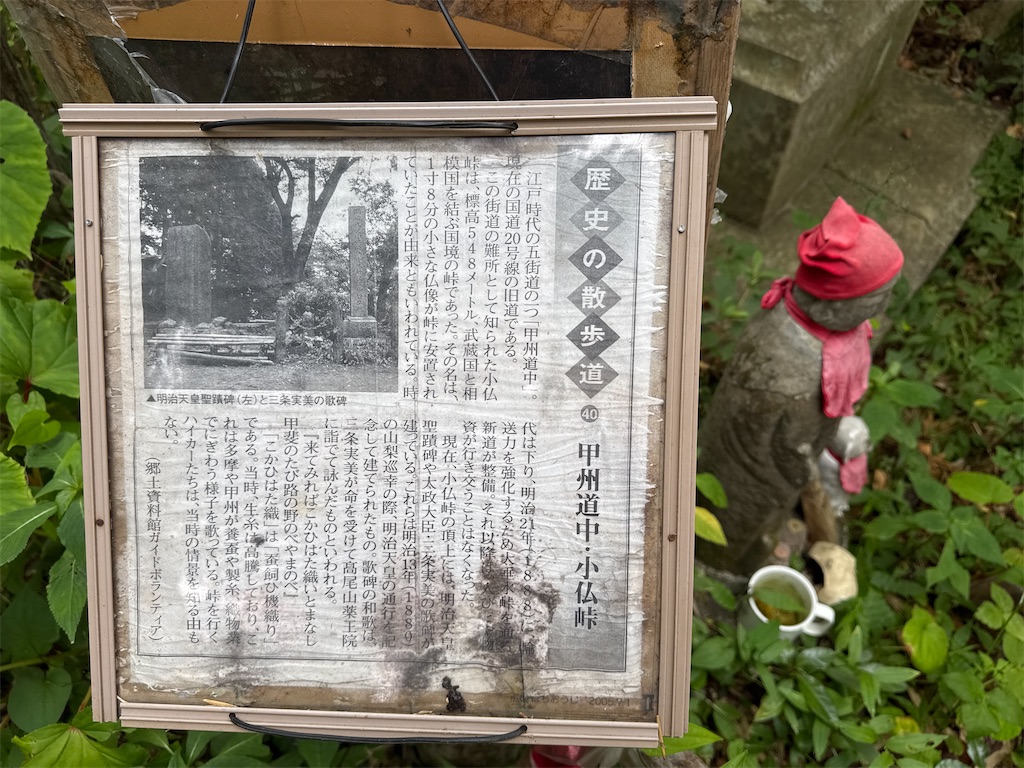 歴史の散歩道 ㊵ 甲州道中・小仏峠
江戸時代の五街道の一つ「甲州道中」。
現在の国道20号線の旧道である。
この街道の難所として知られた小仏
峠は、標高548メートル 武蔵国と相
模国を結ぶ国境の峠であった。その名は、
1寸8分の小さな仏像が峠に安置され
ていたことが由来ともいわれている。時
代は下り、明治21年(1888)に
送力を強化するため大垂水峠を
新道が整備。それ以降、
資が行き交うことはなくなった。
現在、小仏峠の頂上には、明治天皇
聖蹟碑や太政大臣・三条実美の歌碑が
建っている。これらは明治13年(1880)
の山梨巡幸の際、明治天皇の通行を記
念して建てられたもの。歌碑の和歌は、
三条実美が命を受けて高尾山薬王院
に詣でて詠んだものといわれる。
「来てみればこかひはた織いとまなし
甲斐のたび路の野のべやまのべ」
「こかひはた織」は「蚕飼ひ機織り」
である。当時、生糸は高騰しており、こ
れは多摩や甲州が養蚕や製糸、織物業
でにぎわう様子を歌っている。峠を行く
ハイカーたちは、当時の情景を知る由も
ない。
(郷土資料館ガイドボランティア)
▲明治天皇聖蹟碑(左)と三条実美の歌碑
2005.9.1